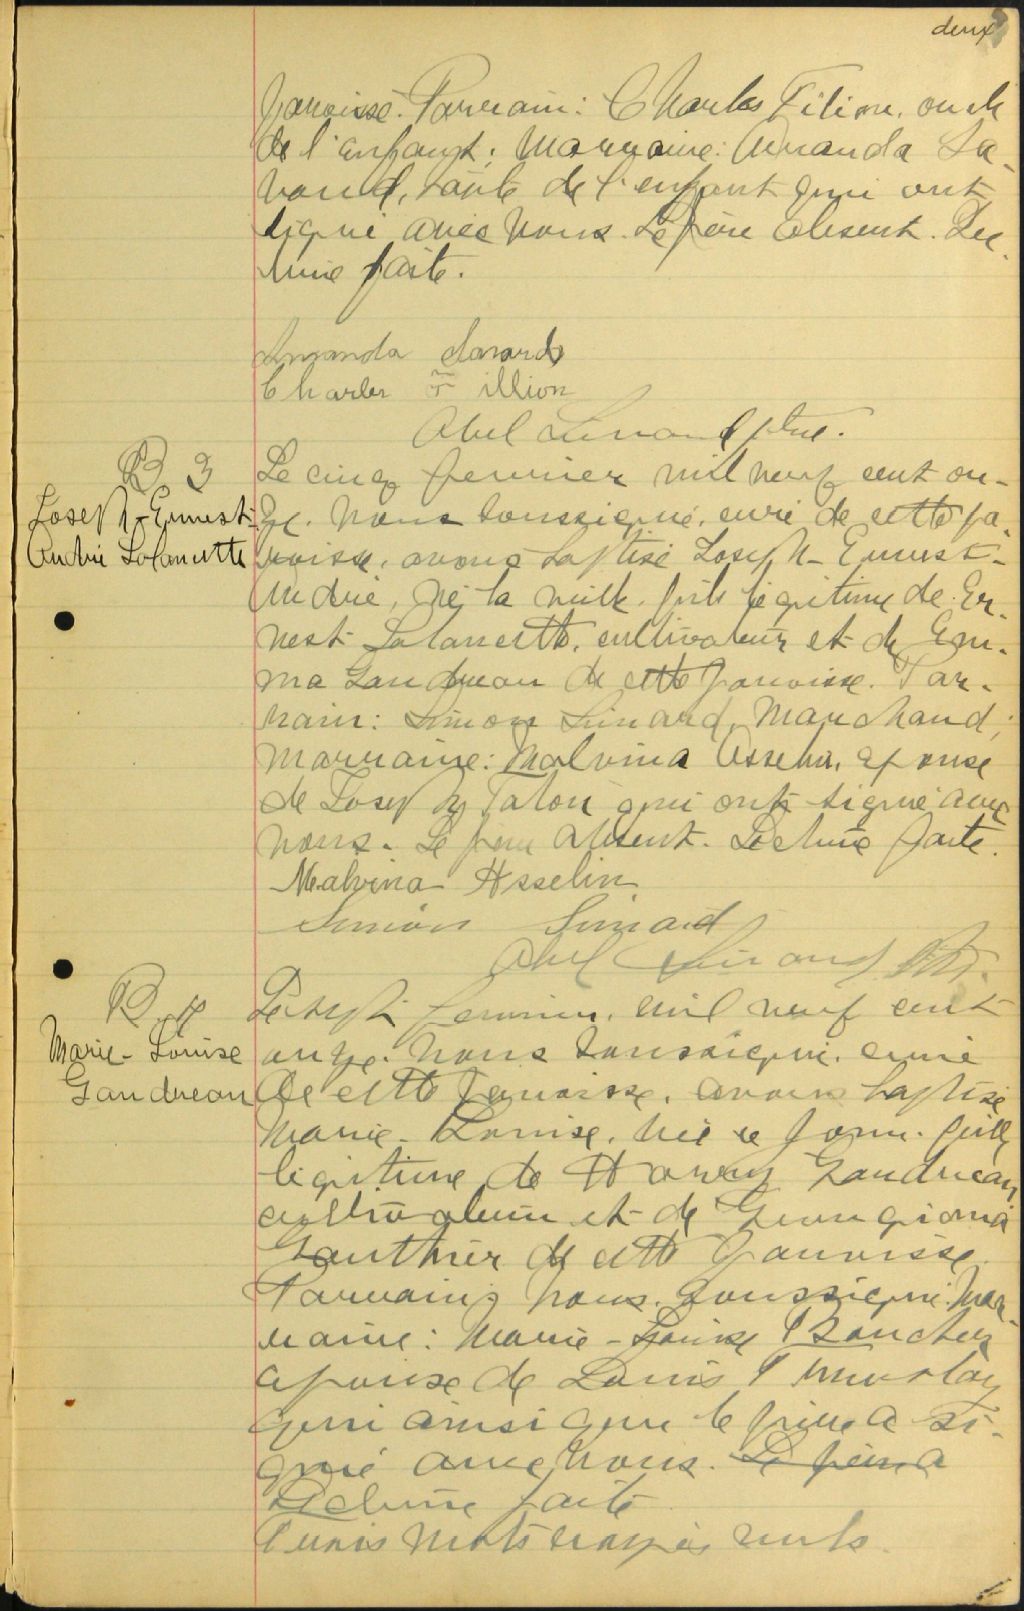 deux
paroisse. Parrain: Charles Filion, oncle
de l'enfant; Marraine: Amanda Sa-
vard, tante de l'enfant qui ont
signé avec nous. Le père absent. Lec-
ture faite.
Amanda Savard
Charles Fillion
Abel Simard ptre.
B 3
Joseph-Ernest-
André Lalancette
Le cinq février mil neuf cent on-
ze. Nous soussigné, curé de cette pa-
roisse, avons baptisé Joseph-Ernest-
André, né la veille, fils légitime de Er-
nest Lalancette, cultivateur et de Em-
ma Gaudreau de cette paroisse. Par-
rain: Simon Simard, Marchand;
Marraine: Malvina Asselin, épouse
de Joseph Talon qui ont signé avec
nous. Le père absent. Lecture faite.
Malvina Asselin
Simon Simard
Abel Simard Ptre.
B. 4
Marie-Louise
Gaudreau
Le sept février, mil neuf cent
onze. Nous soussigné, curé
de cette paroisse, avons baptisé
Marie-Louise, née ce jour, fille
légitime de Harry Gaudreau,
cultivateur et de Georgiana
Gauthier de cette paroisse.
Parrain, nous, soussigné. Mar-
raine: Marie-Louise Boucher
épouse de Louis
qui ainsi que le père a si-
gné avec nous. Le père a
Lecture faite
Trois mots rayés nuls.